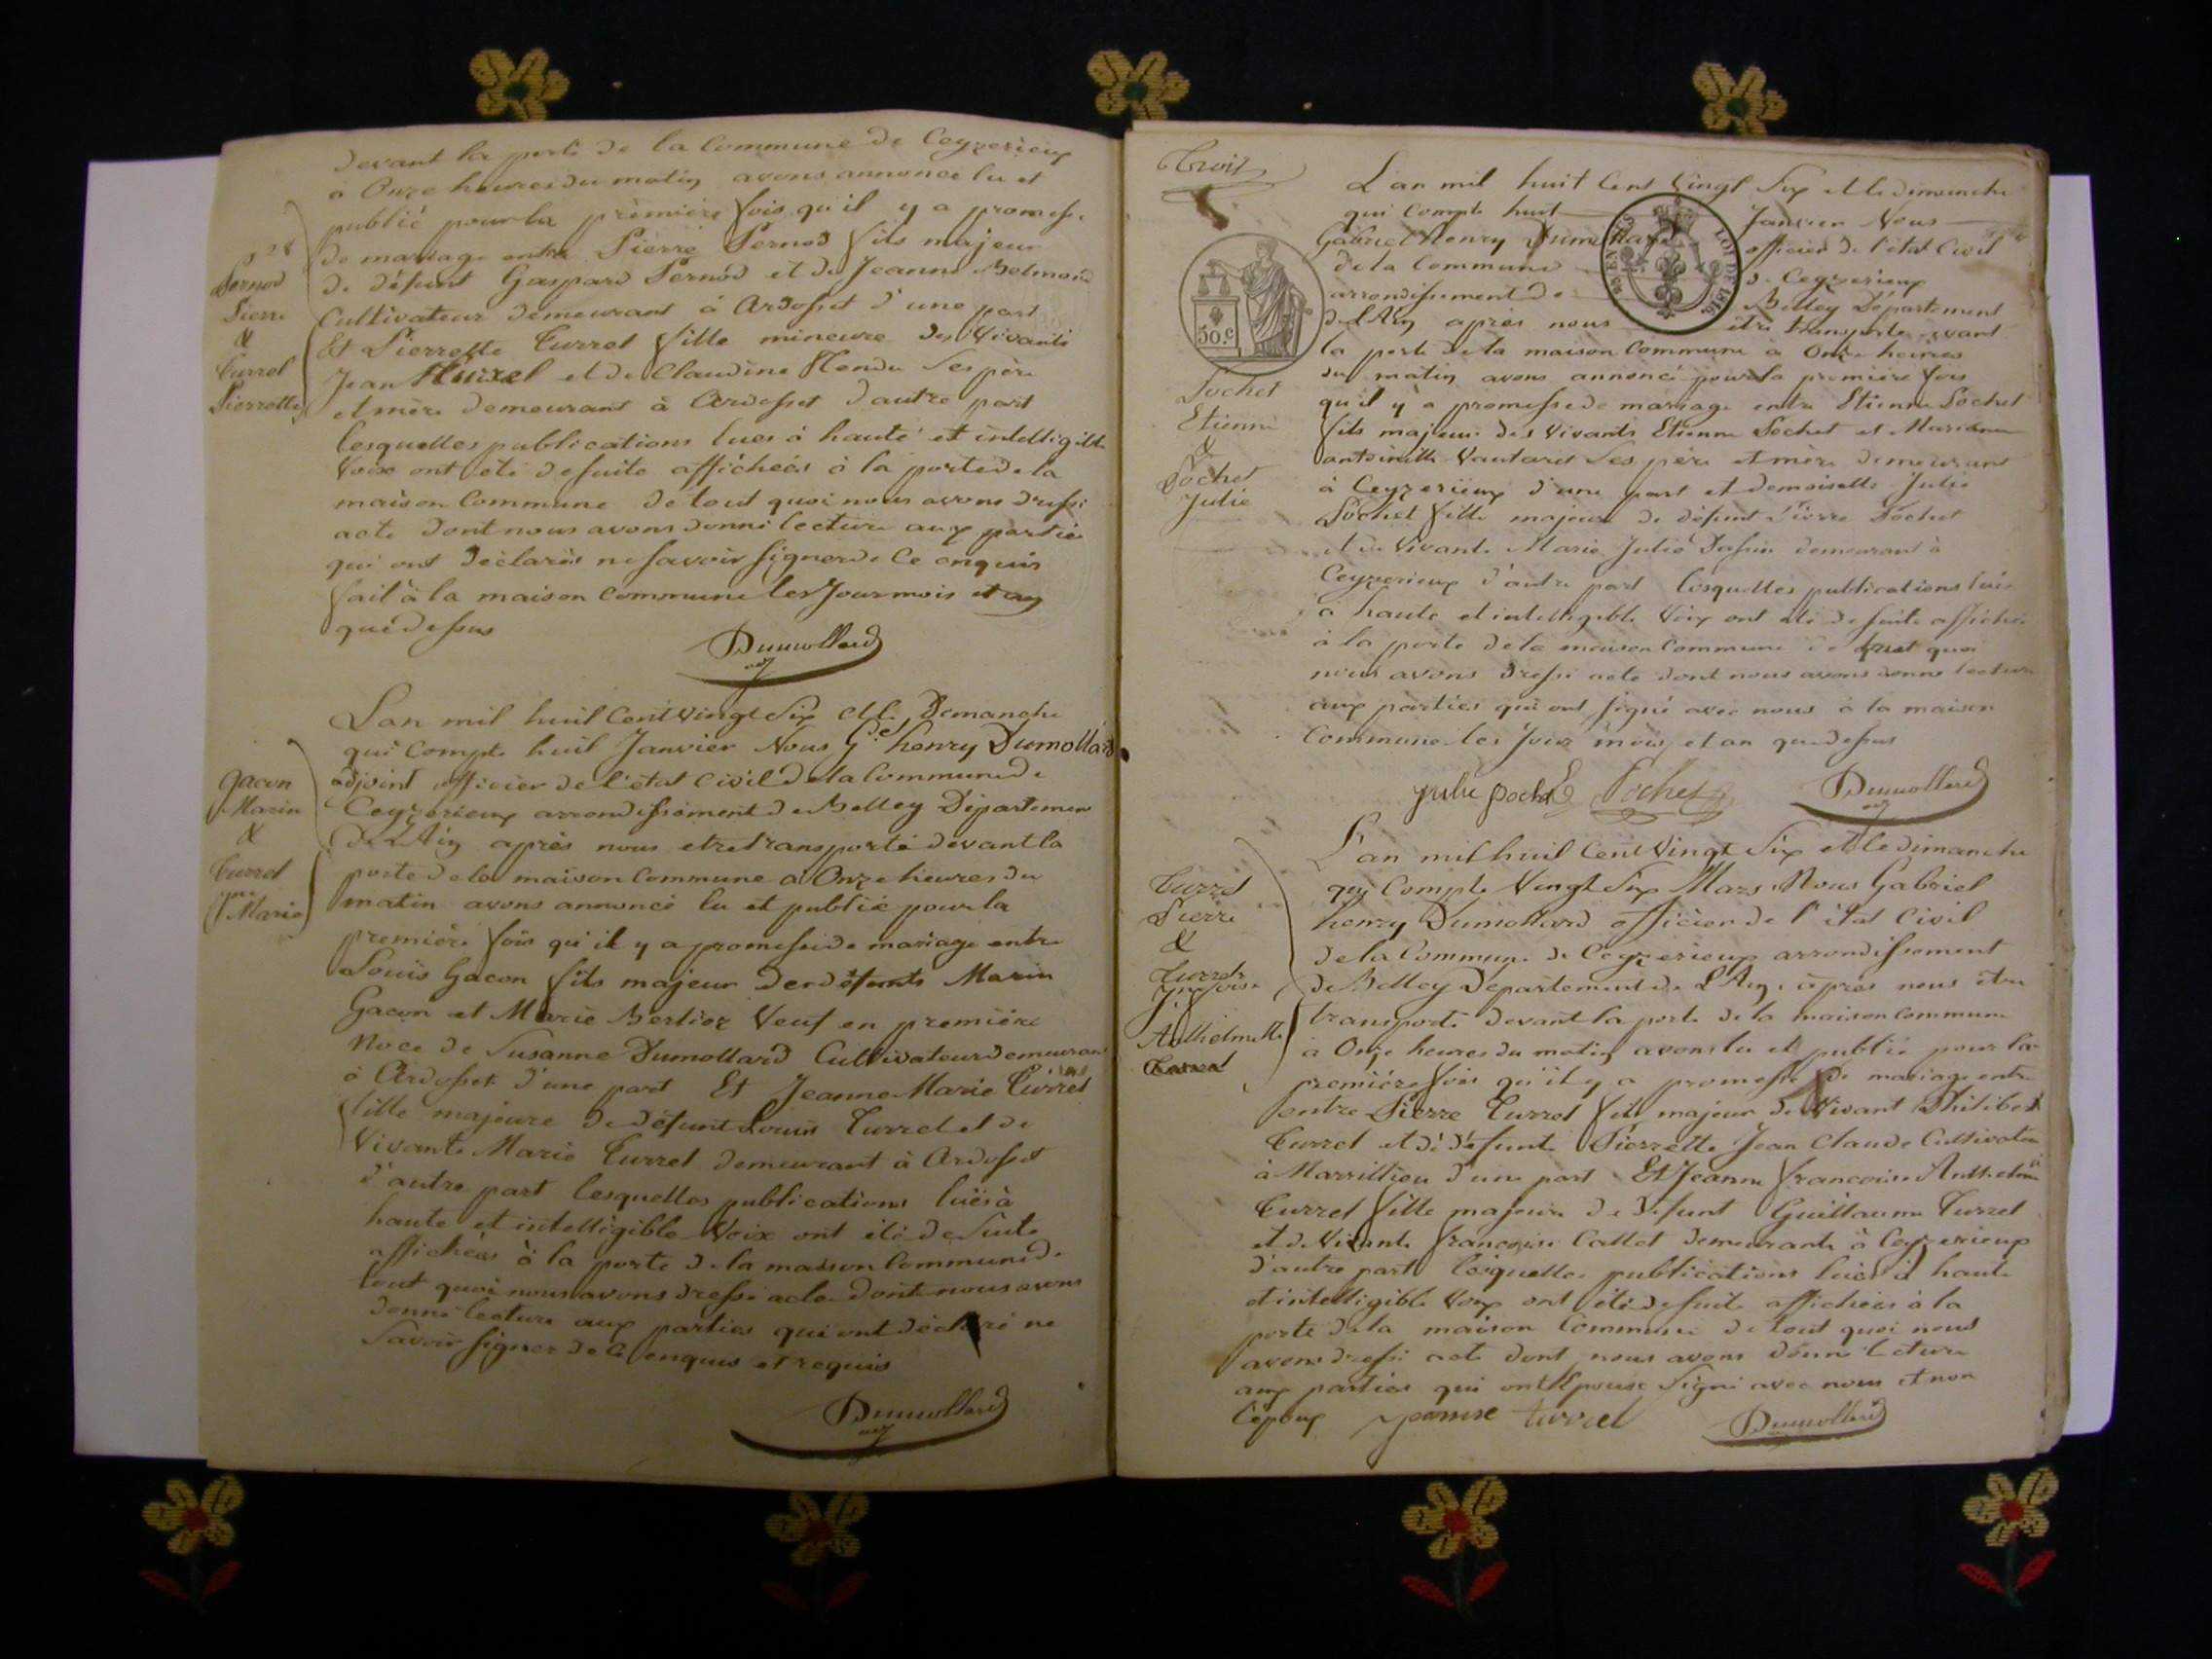 devant la porte de la Commune de Ceyzerieux
à Onze heures du matin avons annoncé lu et
publié pour la première fois qu'il y a promesse
de mariage entre Pierre Pernod fils majeur
de défunt Gaspard Pernod et de Jeanne Belmond
Cultivateur demeurant à Ardosset d'une part
Et Pierrette Turrel fille mineure des vivants
Jean Turrel et de Claudine ses père
et mère demeurant à Ardosset d'autre part
lesquelles publications lues à haute et intelligible
Voix ont été de suite affichées à la porte de la
maison Commune de tout quoi nous avons dressé
acte dont nous avons donné lecture aux parties
qui ont déclarés ne savoir signer de ce enquis
fait à la maison Commune les Jour mois et an
que dessus
Dumollard
Pernod
Pierre
&
Turrel
Pierrette
L'an mil huit Cent vingt Six et le Dimanche
qui Compte huit Janvier Nous henry Dumollard
adjoint officier de l'état Civil de la Commune de
Ceyzerieux arrondissement de Belley Département
De L'Ain après nous etre transporté devant la
porte de la maison Commune à Onze heures du
matin avons annoncé lu et publié pour la
première fois qu'il y a promesse de mariage entre
Louis Gacon fils majeur des défunts Marin
Gacon et Marie Berlioz Veuf en première
Noce de Susanne Dumollard Cultivateur demeurant
à Ardosset d'une part Et Jeanne Marie Turrel
fille majeure de défunt Louis Turrel et de
Vivante Marie Turrel demeurant à Ardosset
d'autre part lesquelles publications luës à
haute et intelligible Voix ont été de Suite
affichées à la porte de la maison Commune de
tout quoi nous avons dressé acte dont nous avons
donné lecture aux parties qui ont déclaré ne
Savoir signer de ce enquis et requis
Dumollard
Gacon
Marin
&
Turrel
Marie
Trois
L'an mil huit Cent Vingt Six et le dimanche
qui Compte huit Janvier Nous
Gabriel henry Dumollard officier de l'état Civil
de la Commune de Ceyzerieux
arrondissement de Belley Département
de l'Ain après nous être transporté devant
la porte de la maison Commune à Onze heures
du matin avons annoncé pour la première fois
qu'il y a promesse de mariage entre Etienne Pochet
fils majeur des Vivants Etienne Pochet et Marianne
antoinette Vautaret Ses père et mère demeurant
à Ceyzerieux d'une part et demoiselle Julie
Pochet fille majeure de défunt Pierre Pochet
et de Vivante Marie Julie demeurant à
Ceyzerieux d'autre part lesquelles publications lues
à haute et intelligible Voix ont été de suite affichées
à la porte de la maison Commune de tout quoi
nous avons dressé acte dont nous avons donné lecture
aux parties qui ont signé avec nous à la maison
Commune les Jour mois et an que dessus
julie pochet E Pochet Dumollard
ES EN SUS LOI DE 1816
50.c
Pochet
Etienne
&
Pochet
Julie
L'an mil huit Cent Vingt Six et le dimanche
qui Compte Vingt Six Mars Nous Gabriel
henry Dumollard officier de l'état Civil
de la Commune de Ceyzerieux arrondissement
de Belley Département de L'Ain après nous être
transporté devant la porte de la maison Commune
à Onze heures du matin avons lu et publié pour la
première fois qu'il y a promesse de mariage entre
entre Pierre Turrel fils majeur de Vivant Philibert
Turrel et de défunte Pierrette Jean Claude Cultivateur
à Marrillieu d'une part Et Jeanne françoise Anthelmette
Turrel fille majeure de défunt Guillaume Turrel
et de Vivante françoise Callet demeurante à Ceyzerieux
d'autre part lesquelles publications lues à haute
et intelligible Voix ont été de suite affichées à la
porte de la maison Commune de tout quoi nous
avons dressé acte dont nous avons donné lecture
aux parties qui ont l'épouse Signé avec nous et non
l'époux Jeannne turrel Dumollard
Turrel
Pierre
&
Turrel
Anthelmette